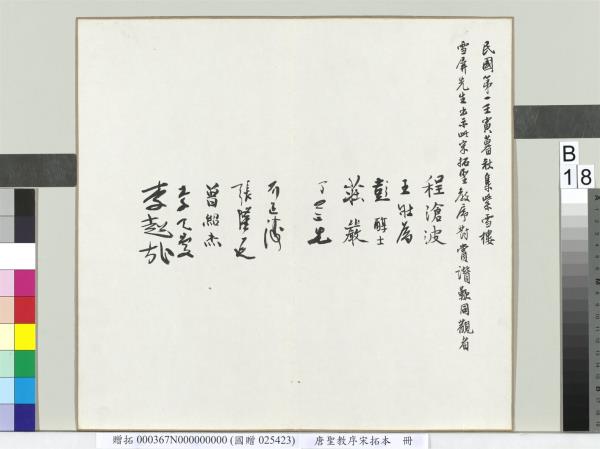 民國第一壬寅暮秋集紫雪樓
雪屏先生出示此宋拓聖教序對賞讚歎同觀者
程滄波
王壯為
彭醇士
莊嚴
丁念先
張隆延
曾紹杰
李超哉
B
18
A
贈拓 000367N000000000 (國贈 025423) 唐聖教序宋拓本 冊